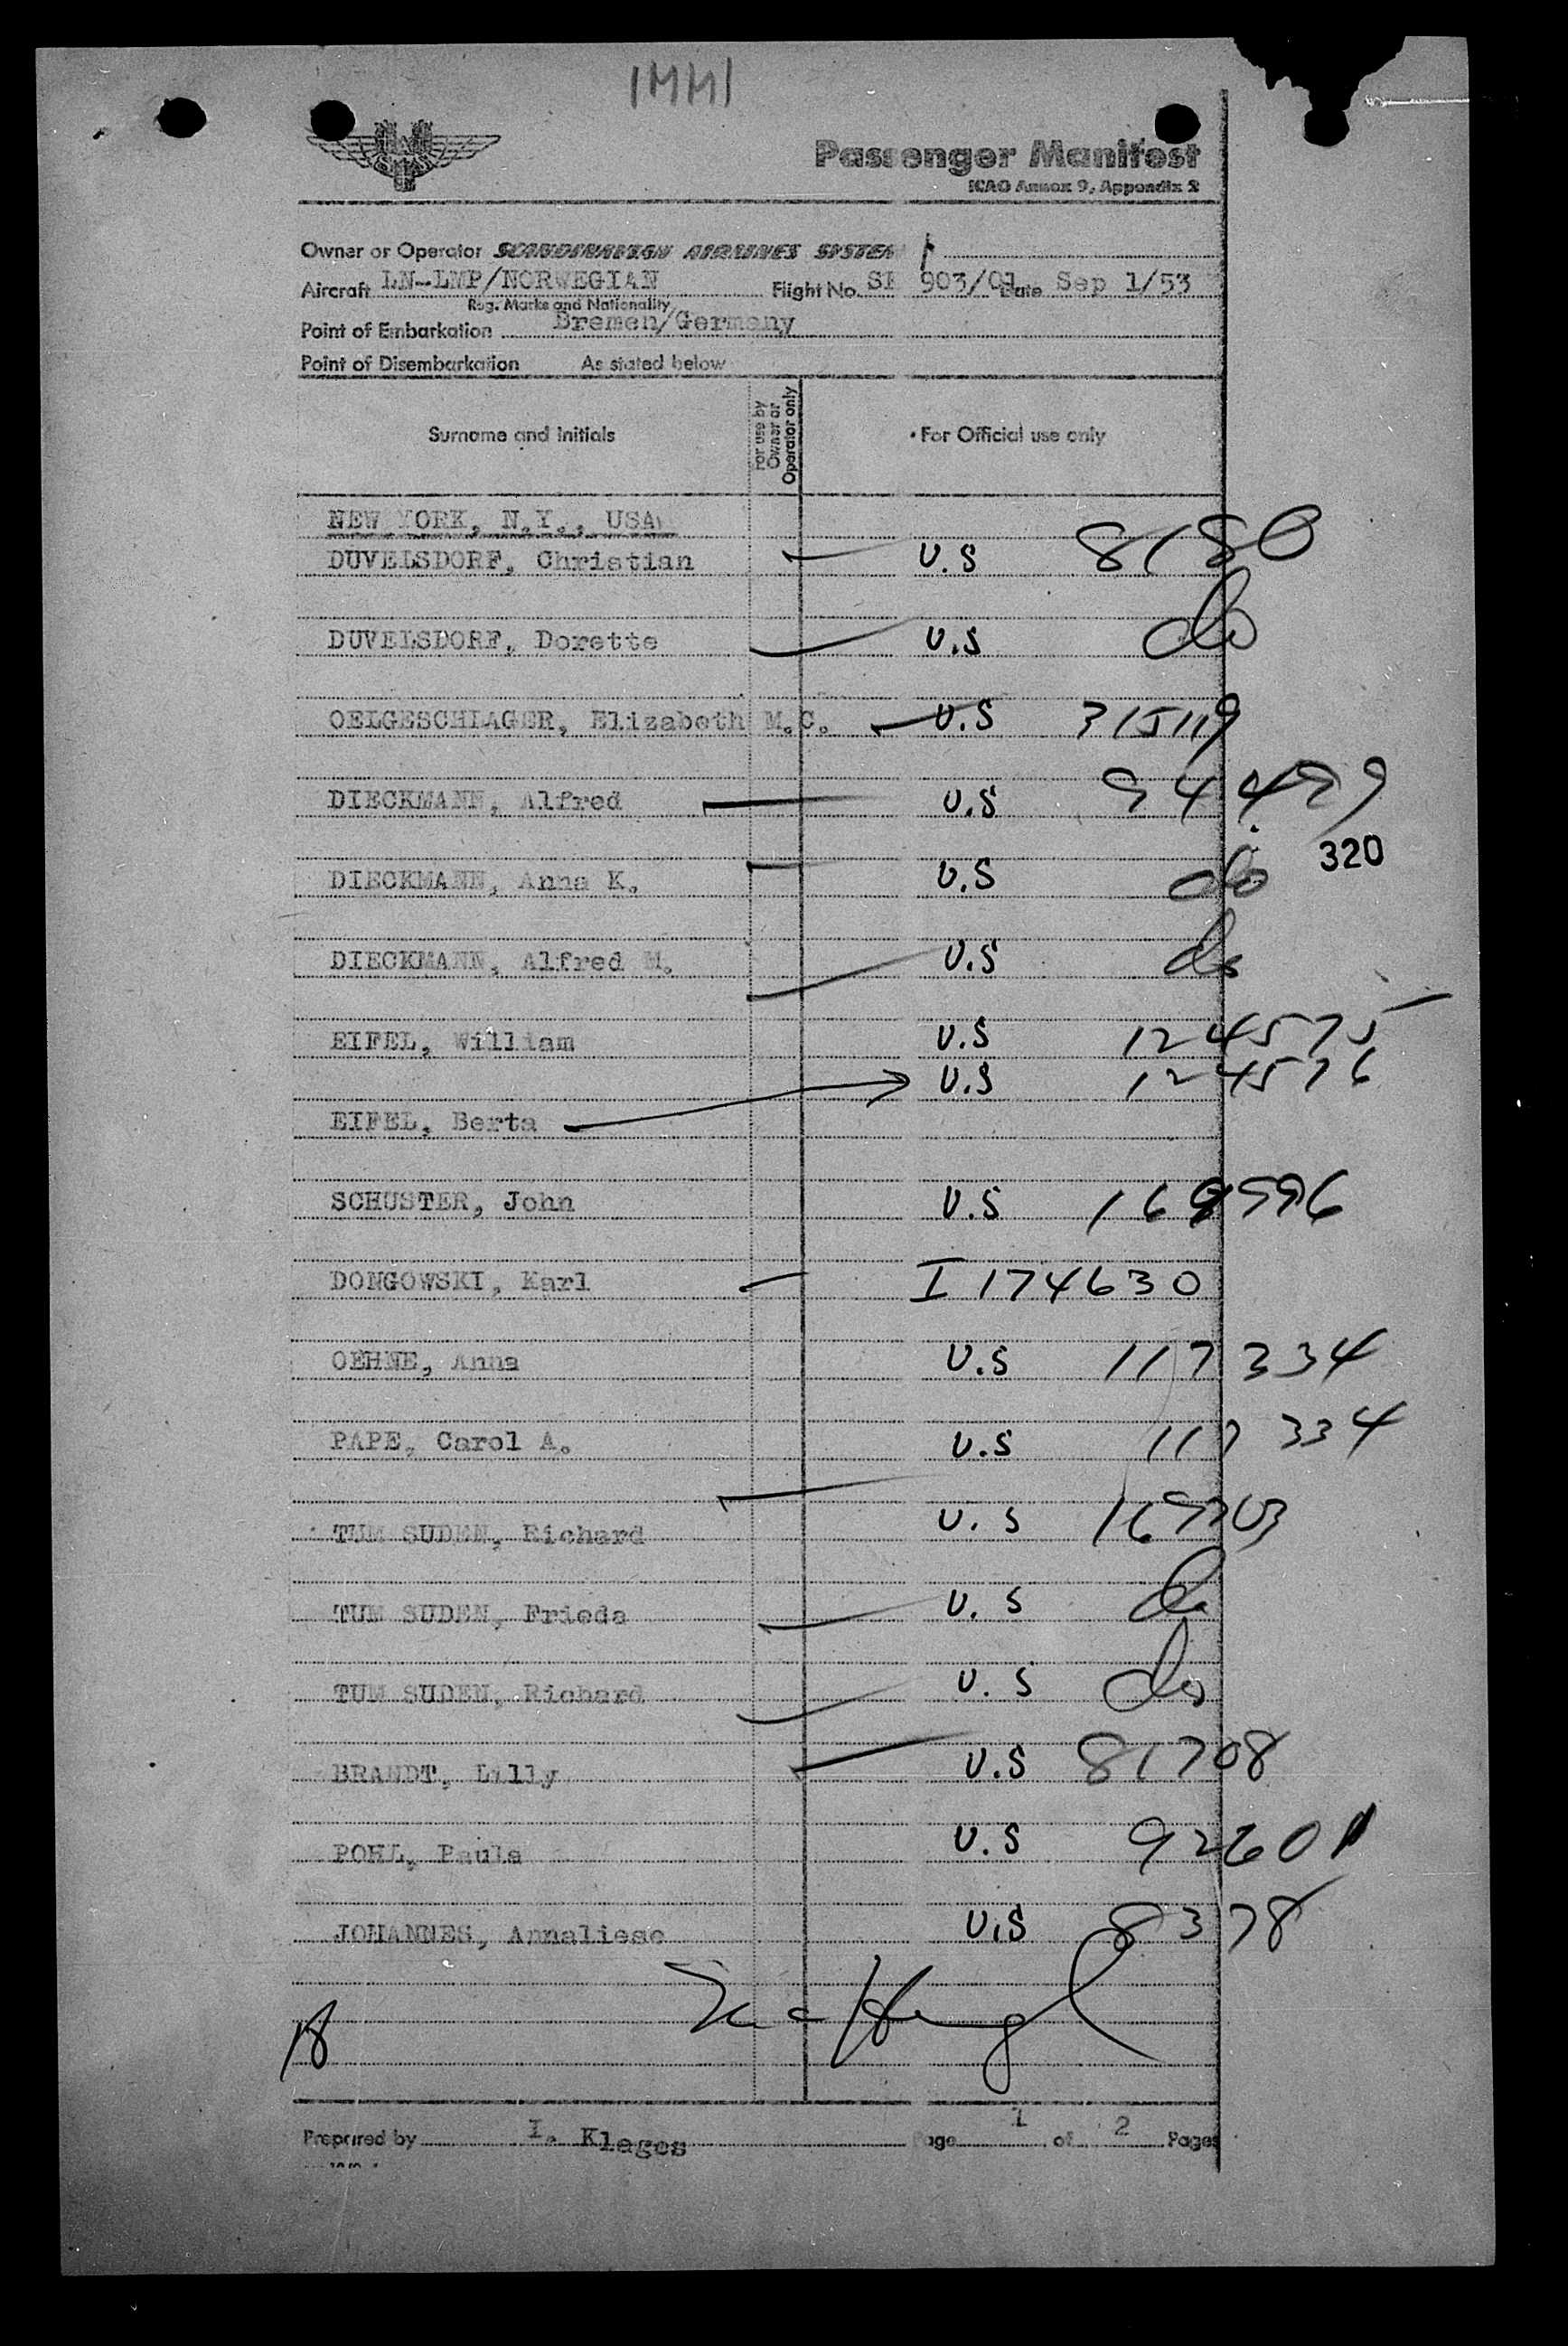 IMMI
Passenger Manifest
ICAO Annex 9, Appendix 2
Owner or Operator SCANDINAVIAN AIRLINES SYSTEM
Aircraft LN-LMP/NORWEGIAN Flight No. SK 903/01 Date Sep 1/53
Reg. Marks and Nationality
Point of Embarkation Bremen/Germany
Point of Disembarkation As stated below
Surname and Initials For use by Owner or Operator only • For Official use only
NEW YORK, N.Y., USA
DUVELSDORF, Christian U.S 8180
DUVELSDORF, Dorette U.S do
OELGESCHLAGER, Elizabeth M.C. U.S 315119
DIECKMANN, Alfred U.S 94499
320
DIECKMANN, Anna K. U.S do
DIECKMANN, Alfred M. U.S do
EIFEL, William U.S 124575
EIFEL, Berta U.S 124576
SCHUSTER, John U.S 169996
DONGOWSKI, Karl I 174630
OEHNE, Anna U.S 117334
PAPE, Carol A. U.S 117334
TUM SUDEN, Richard U.S
TUM SUDEN, Frieda U.S do
TUM SUDEN, Richard U.S do
BRANDT, Lilly U.S 81708
POHL, Paula U.S 92601
JOHANNES, Annaliese U.S 8378
18
Prepared by I. Klages Page 1 of 2 Pages